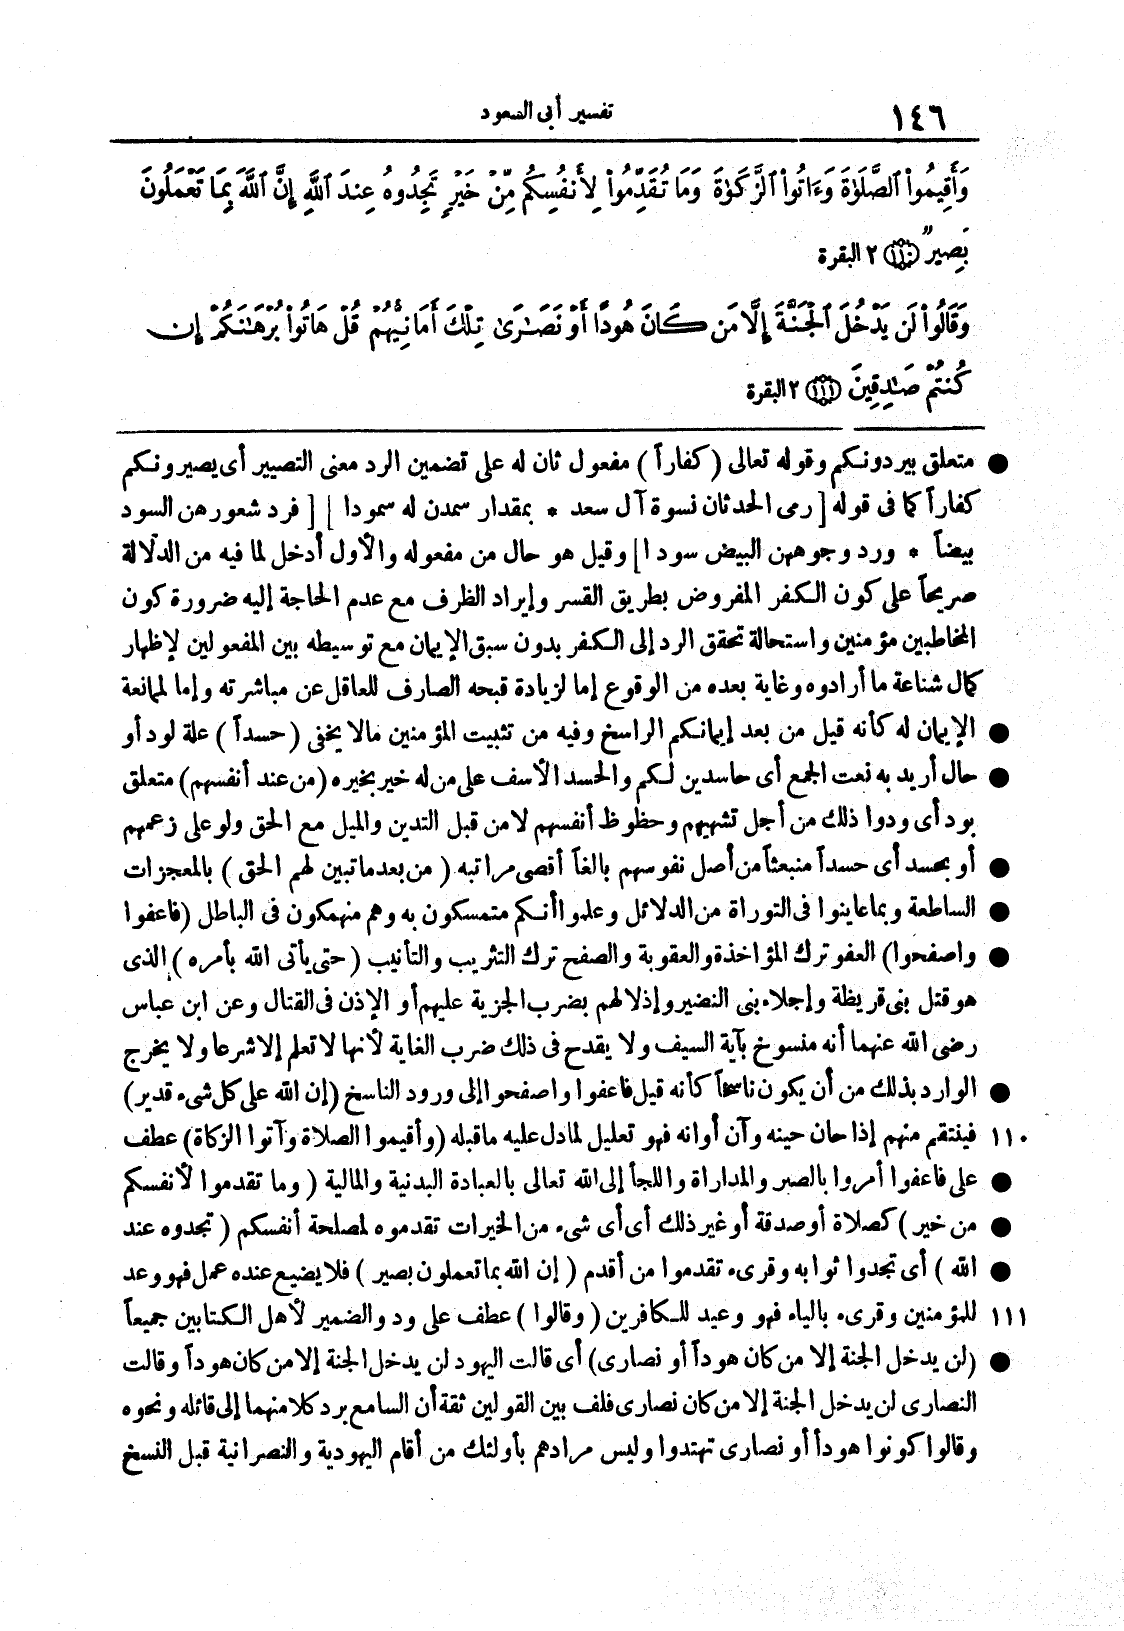 ١٤٦ تفسير أبى السعود
وَأَقِيمُواْ ٱلصَّلَوٰةَ وَءَاتُواْ ٱلزَّكَوٰةَ وَمَا تُقَدِّمُواْ لِأَنفُسِكُم مِّنْ خَيْرٍ تَجِدُوهُ عِندَ ٱللَّهِ إِنَّ ٱللَّهَ بِمَا تَعْمَلُونَ
بَصِيرٌ ﴿١١٠﴾ ٢ البقرة
وَقَالُواْ لَن يَدْخُلَ ٱلْجَنَّةَ إِلَّا مَن كَانَ هُودًا أَوْ نَصَٰرَىٰ تِلْكَ أَمَانِيُّهُمْ قُلْ هَاتُواْ بُرْهَٰنَكُمْ إِن
كُنتُمْ صَٰدِقِينَ ﴿١١١﴾ ٢ البقرة
● متعلق بيردونكم وقوله تعالى (كفاراً) مفعول ثان له على تضمين الرد معنى التصيير أى يصيرونكم
كفاراً كما فى قوله [رمى الحدثان نسوة آل سعد * بمقدار سمدن له سمودا] [فرد شعورهن السود
بيضاً * ورد وجوههن البيض سودا] وقيل هو حال من مفعوله والأول أدخل لما فيه من الدلالة
صريحاً على كون الكفر المفروض بطريق القسر وإيراد الظرف مع عدم الحاجة إليه ضرورة كون
المخاطبين مؤمنين واستحالة تحقق الرد إلى الكفر بدون سبق الإيمان مع توسيطه بين المفعولين لإظهار
كمال شناعة ما أرادوه وغاية بعده من الوقوع إما لزيادة قبحه الصارف للعاقل عن مباشرته وإما لممانعة
● الإيمان له كأنه قيل من بعد إيمانكم الراسخ وفيه من تثبيت المؤمنين مالا يخفى (حسداً) علة لود أو
● حال أريد به نعت الجمع أى حاسدين لكم والحسد الأسف على من له خير بخيره (من عند أنفسهم) متعلق
بود أى ودوا ذلك من أجل تشهيهم وحظوظ أنفسهم لا من قبل التدين والميل مع الحق ولو على زعمهم
● أو بحسد أى حسداً منبعثاً من أصل نفوسهم بالغاً أقصى مراتبه (من بعد ما تبين لهم الحق) بالمعجزات
● الساطعة وبما عاينوا فى التوراة من الدلائل وعلموا أنكم متمسكون به وهم منهمكون فى الباطل (فاعفوا
● واصفحوا) العفو ترك المؤاخذة والعقوبة والصفح ترك التثريب والتأنيب (حتى يأتى الله بأمره) الذى
هو قتل بنى قريظة وإجلاء بنى النضير وإذلالهم بضرب الجزية عليهم أو الإذن فى القتال وعن ابن عباس
رضى الله عنهما أنه منسوخ بآية السيف ولا يقدح فى ذلك ضرب الغاية لأنها لا تعلم إلا شرعا ولا يخرج
● الوارد بذلك من أن يكون ناسخاً كأنه قيل فاعفوا واصفحوا إلى ورود الناسخ (إن الله على كل شىء قدير)
١١٠ فينتقم منهم إذا حان حينه وآن أوانه فهو تعليل لما دل عليه ما قبله (وأقيموا الصلاة وآتوا الزكاة) عطف
● على فاعفوا أمروا بالصبر والمداراة واللجأ إلى الله تعالى بالعبادة البدنية والمالية (وما تقدموا لأنفسكم
● من خير) كصلاة أو صدقة أو غير ذلك أى أى شىء من الخيرات تقدموه لمصلحة أنفسكم (تجدوه عند
● الله) أى تجدوا ثوابه وقرىء تقدموا من أقدم (إن الله بما تعملون بصير) فلا يضيع عنده عمل فهو وعد
١١١ للمؤمنين وقرىء بالياء فهو وعيد للكافرين (وقالوا) عطف على ود والضمير لأهل الكتابين جميعاً
● (لن يدخل الجنة إلا من كان هوداً أو نصارى) أى قالت اليهود لن يدخل الجنة إلا من كان هوداً وقالت
النصارى لن يدخل الجنة إلا من كان نصارى فلف بين القولين ثقة أن السامع يرد كلا منهما إلى قائله ونحوه
وقالوا كونوا هوداً أو نصارى تهتدوا وليس مرادهم بأولئك من أقام اليهودية والنصرانية قبل النسخ